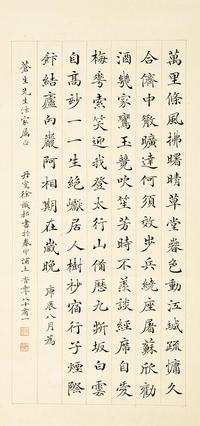 萬里條風拂曙晴草堂春色動江城疏慵久
合儕中散曠達何須放步兵繞座屠蘇欣勸
酒幾家鸞玉競吹笙芳時不羨談經席自愛
梅華索笑迎我登太行山備歷九折坂白雲
自高玅一一生絶巘居人樹杪宿行子煙際
結廬向巖阿相期在歲晚 庚辰八月為
蒼生先生法家屬正
丹叟徐 書於春申浦上 昔年八十有一